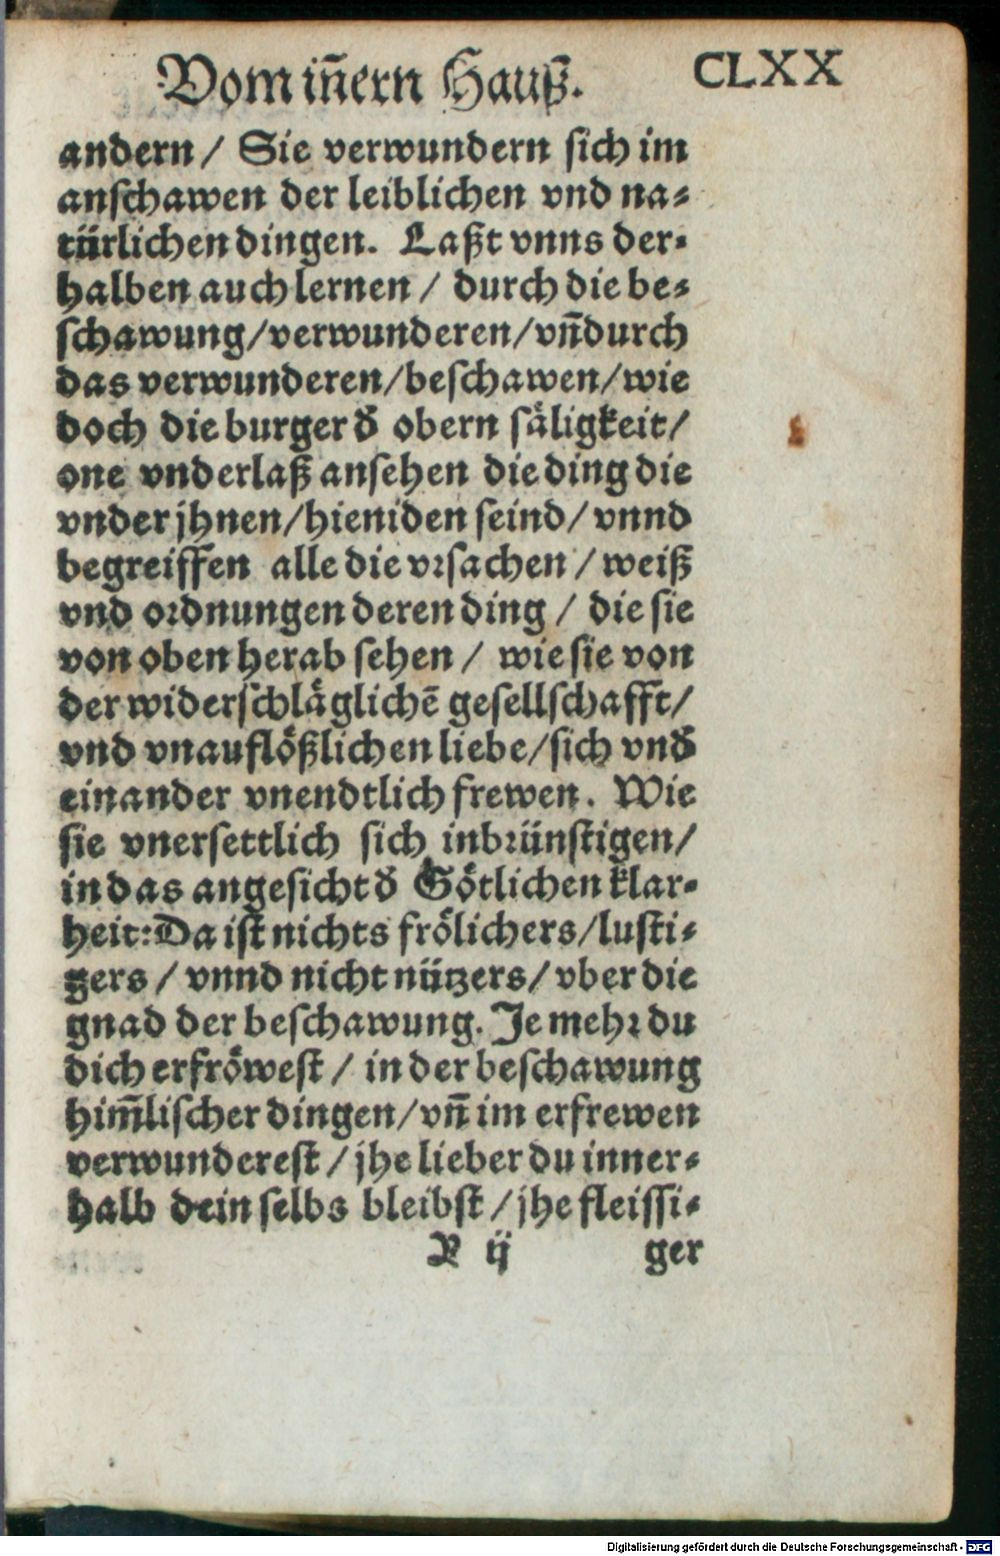 Vom iñern Hauß.
CLXX
andern / Sie verwundern sich im
anschawen der leiblichen vnd na-
türlichen dingen. Laßt vnns der-
halben auch lernen / durch die be-
schawung/verwunderen/vñ durch
das verwunderen/beschawen/wie
doch die burger ď obern såligkeit/
one vnderlaß ansehen die ding die
vnder jhnen/hieniden seind/ vnnd
begreiffen alle die vrsachen / weiß
vnd ordnungen deren ding / die sie
von oben herab sehen / wie sie von
der widerschlåglichē gesellschafft/
vnd vnauflößlichen liebe/sich vnď
einander vnendtlich frewen. Wie
sie vnersettlich sich inbrünstigen/
in das angesicht ď Götlichen klar-
heit: Da ist nichts frölichers/lusti-
gers / vnnd nicht nützers/ vber die
gnad der beschawung. Je mehr du
dich erfröwest / in der beschawung
him̃lischer dingen/vñ im erfrewen
verwunderest / jhe lieber du inner-
halb dein selbs bleibst / jhe fleissi-
R ij
ger
Digitalisierung gefördert durch die Deutsche Forschungsgemeinschaft - DFG